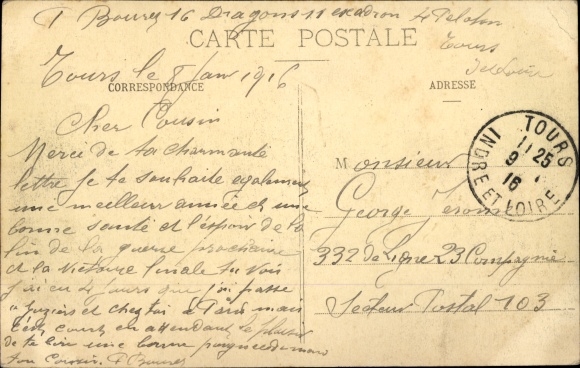 P Bourez 16 Dragons 11 escadron 4 Peloton
CARTE POSTALE
Tours
Tours le 8 Janv 1916
CORRESPONDANCE
ADRESSE
Cher Cousin
Merci de ta charmante
lettre je te souhaite egalement
une meilleur année et une
bonne santé et l'espoir de la
fin de la guerre prochaine
et la victoire finale tu vois
j'ai eu 4 jours que j'ai passé
a et chez toi a Paris mais
c'est court en attendant le plaisir
de te lire une bonne poignee de main
ton Cousin P Bourez
Monsieur
George
332 de Ligne 23 Compagnie
Secteur Postal 103
TOURS
11 25
9
16
INDRE ET LOIRE